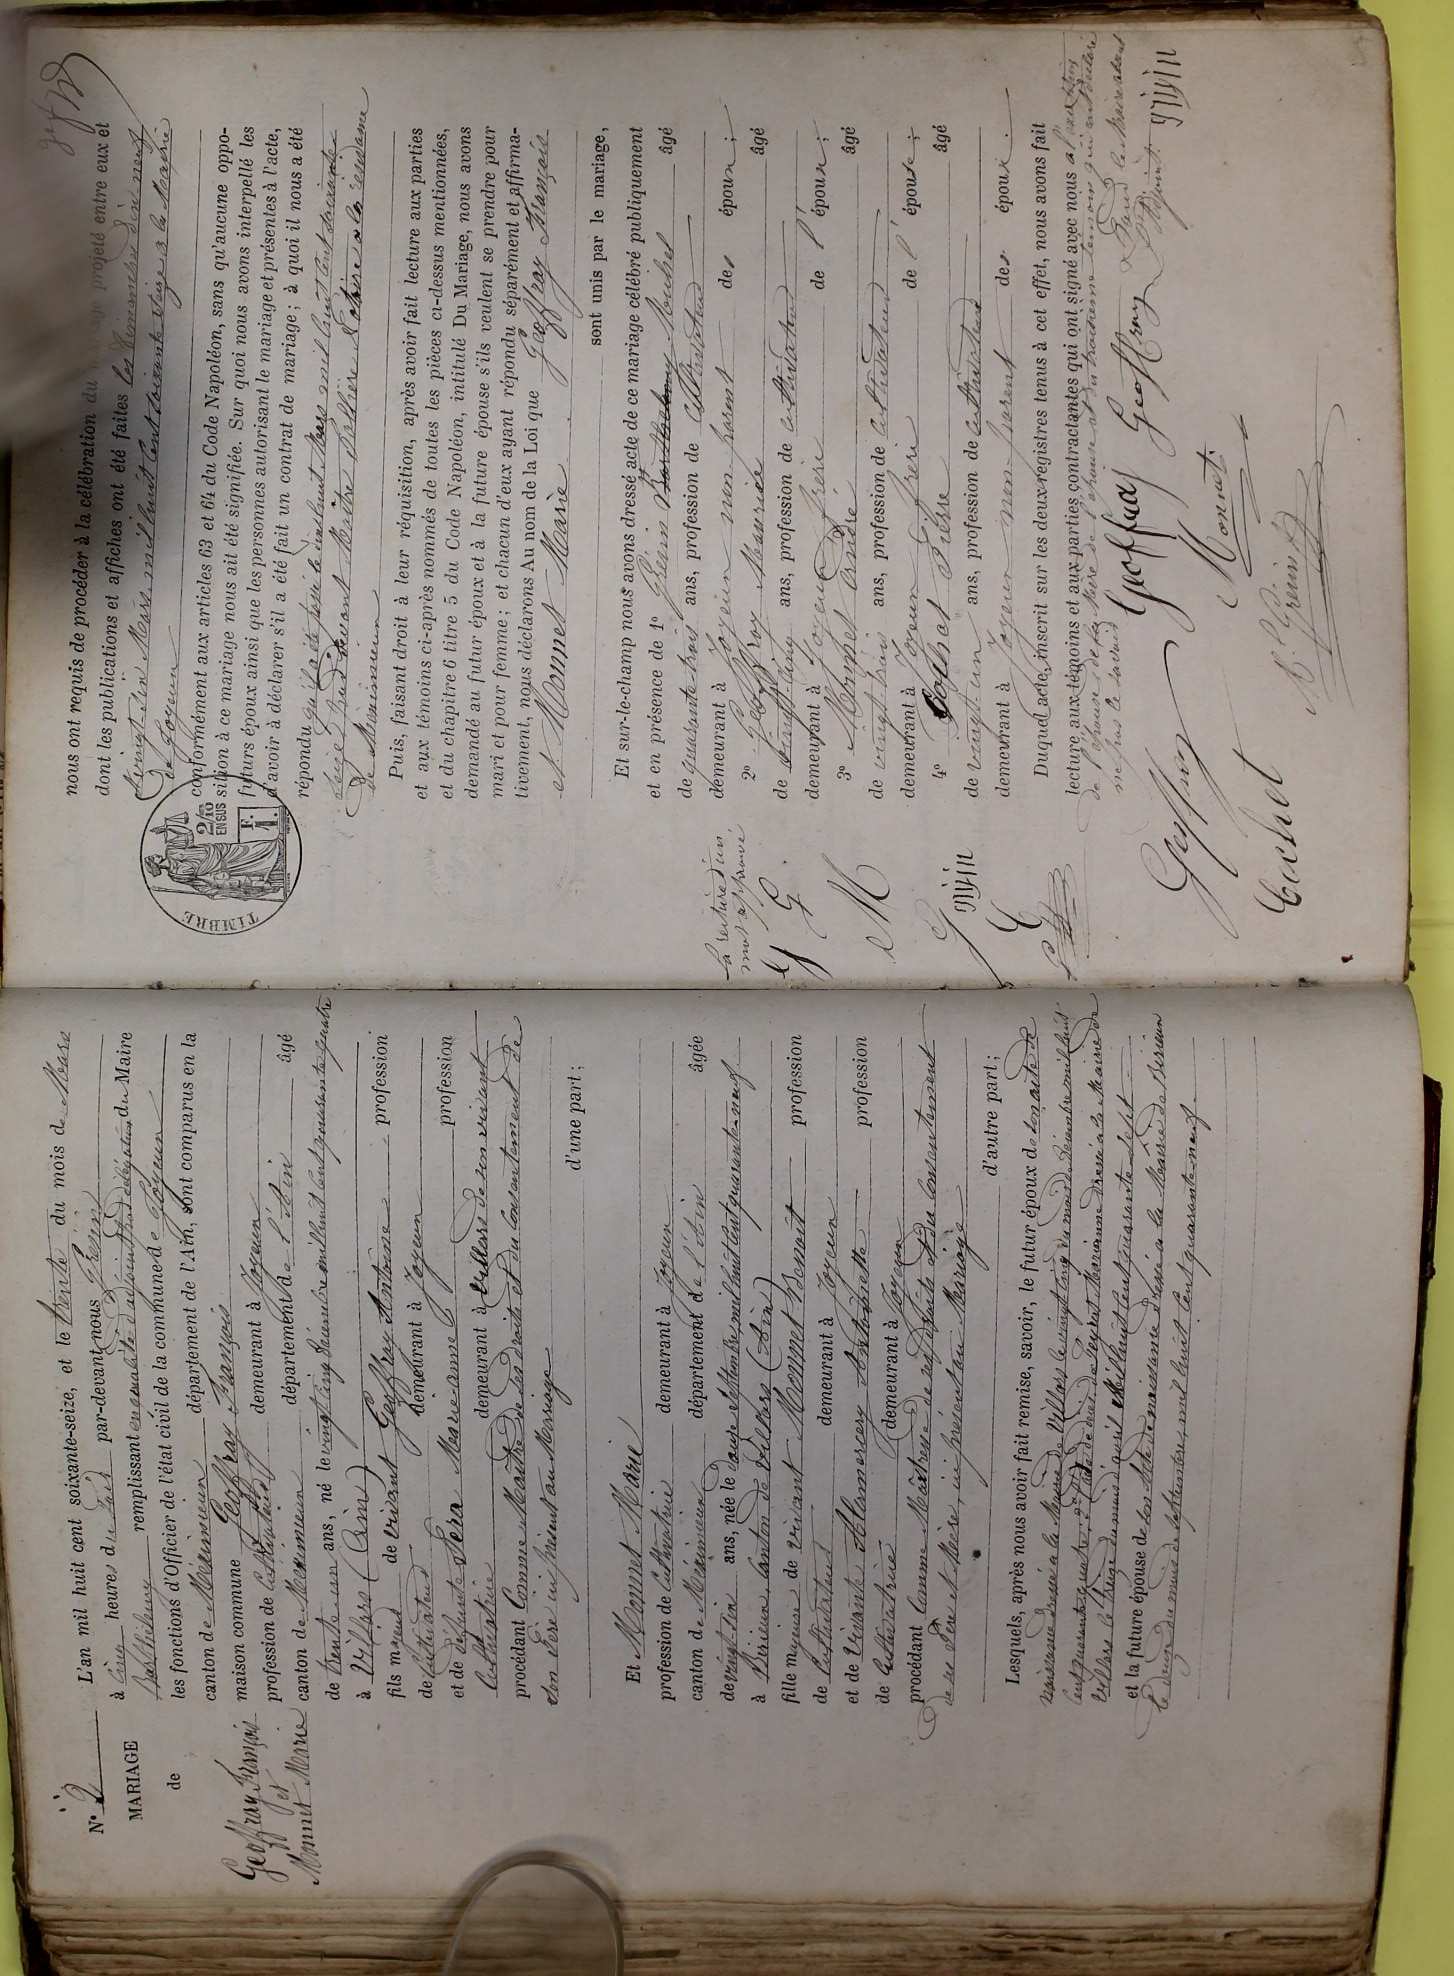 N° 2
MARIAGE
de
Geoffray François
et
Monnet Marie
L'an mil huit cent soixante-seize, et le trente du mois de Mars
à cinq heures du soir par-devant nous Grévin
Barthélemy remplissant en qualité d'adjoint par délégation du Maire
les fonctions d'Officier de l'état civil de la commune de Joyeux
canton de Méximieux département de l'Ain, sont comparus en la
maison commune Geoffray François
profession de Cultivateur demeurant à Joyeux
canton de Meximieux département de l'Ain âgé
de trente un ans, né le vingt cinq Décembre mil huit cent quarante quatre
à Villars (Ain)
fils majeur de vivant Geoffray Antoine profession
de Cultivateur demeurant à Joyeux
et de défunte Péra Marie-anne profession
Cultivatrice demeurant à Villars de son vivant
procédant Comme Maître de ses droits et du Consentement de
son Père ici présent au Mariage
d'une part;
Et Monnet Marie
profession de Cultivatrice demeurant à Joyeux
canton de Méximieux département de l'Ain âgée
de vingt six ans, née le douze Septembre mil huit cent quarante-neuf
à Birieux, Canton de Villars (Ain)
fille majeure de vivant Monnet Benoit profession
de Cultivateur demeurant à Joyeux
et de vivante Alamercery Antoinette profession
de Cultivatrice demeurant à Joyeux
procédant Comme Maîtresse de ses droits et du Consentement
de ses Père et Mère, ici présent au Mariage
d'autre part;
Lesquels, après nous avoir fait remise, savoir, le futur époux de son acte de
naissance dressé à la Mairie de Villars le vingt cinq du mois de Décembre mil huit
cent quarante quatre, 2° de l'acte de décès de Marianne dressé à la Mairie de
Villars le treize du mois d'avril Mil huit cent soixante sept
et la future épouse de son acte de naissance dressé à la Mairie de Birieux
le douze du mois de Septembre, mil huit cent quarante-neuf.
nous ont requis de procéder à la célébration du mariage projeté entre eux et
dont les publications et affiches ont été faites les Dimanches dix neuf
et vingt six Mars mil huit cent soixante seize à la Mairie
de Joyeux
conformément aux articles 63 et 64 du Code Napoléon, sans qu'aucune oppo-
sition à ce mariage nous ait été signifiée. Sur quoi nous avons interpellé les
futurs époux ainsi que les personnes autorisant le mariage et présentes à l'acte,
d'avoir à déclarer s'il a été fait un contrat de mariage; à quoi il nous a été
répondu qu'il a été passé le Mars mil huit cent soixante
seize devant Maître Notaire à la résidence
de Méximieux
TIMBRE
2/10 EN SUS
1 F.
Puis, faisant droit à leur réquisition, après avoir fait lecture aux parties
et aux témoins ci-après nommés de toutes les pièces ci-dessus mentionnées,
et du chapitre 6 titre 5 du Code Napoléon, intitulé Du Mariage, nous avons
demandé au futur époux et à la future épouse s'ils veulent se prendre pour
mari et pour femme; et chacun d'eux ayant répondu séparément et affirma-
tivement, nous déclarons Au nom de la Loi que Geoffray François
et Monnet Marie
sont unis par le mariage,
Et sur-le-champ nous avons dressé acte de ce mariage célébré publiquement
et en présence de 1° Grévin Barthelemy Michel âgé
de quarante trois ans, profession de Cultivateur
demeurant à Joyeux non parent des époux;
2° Geoffray Maurice âgé
de vingt-cinq ans, profession de cultivateur
demeurant à Joyeux frère de l'époux;
3° Monnet André âgé
de vingt trois ans, profession de cultivateur
demeurant à Joyeux frère de l'épouse;
4° Cochet Pierre âgé
de vingt un ans, profession de cultivateur
demeurant à Joyeux non parent des époux.
Duquel acte, inscrit sur les deux registres tenus à cet effet, nous avons fait
lecture aux témoins et aux parties contractantes qui ont signé avec nous à l'exception
de l'épouse, de la Mère de l'épouse et du troisième témoin qui ont déclaré
ne pas le savoir
Pour le Maire absent
l'Adjoint
la rature d'un
mot approuvé
Geoffray Geoffray
Geoffray Monnet
Cochet M. Grévin